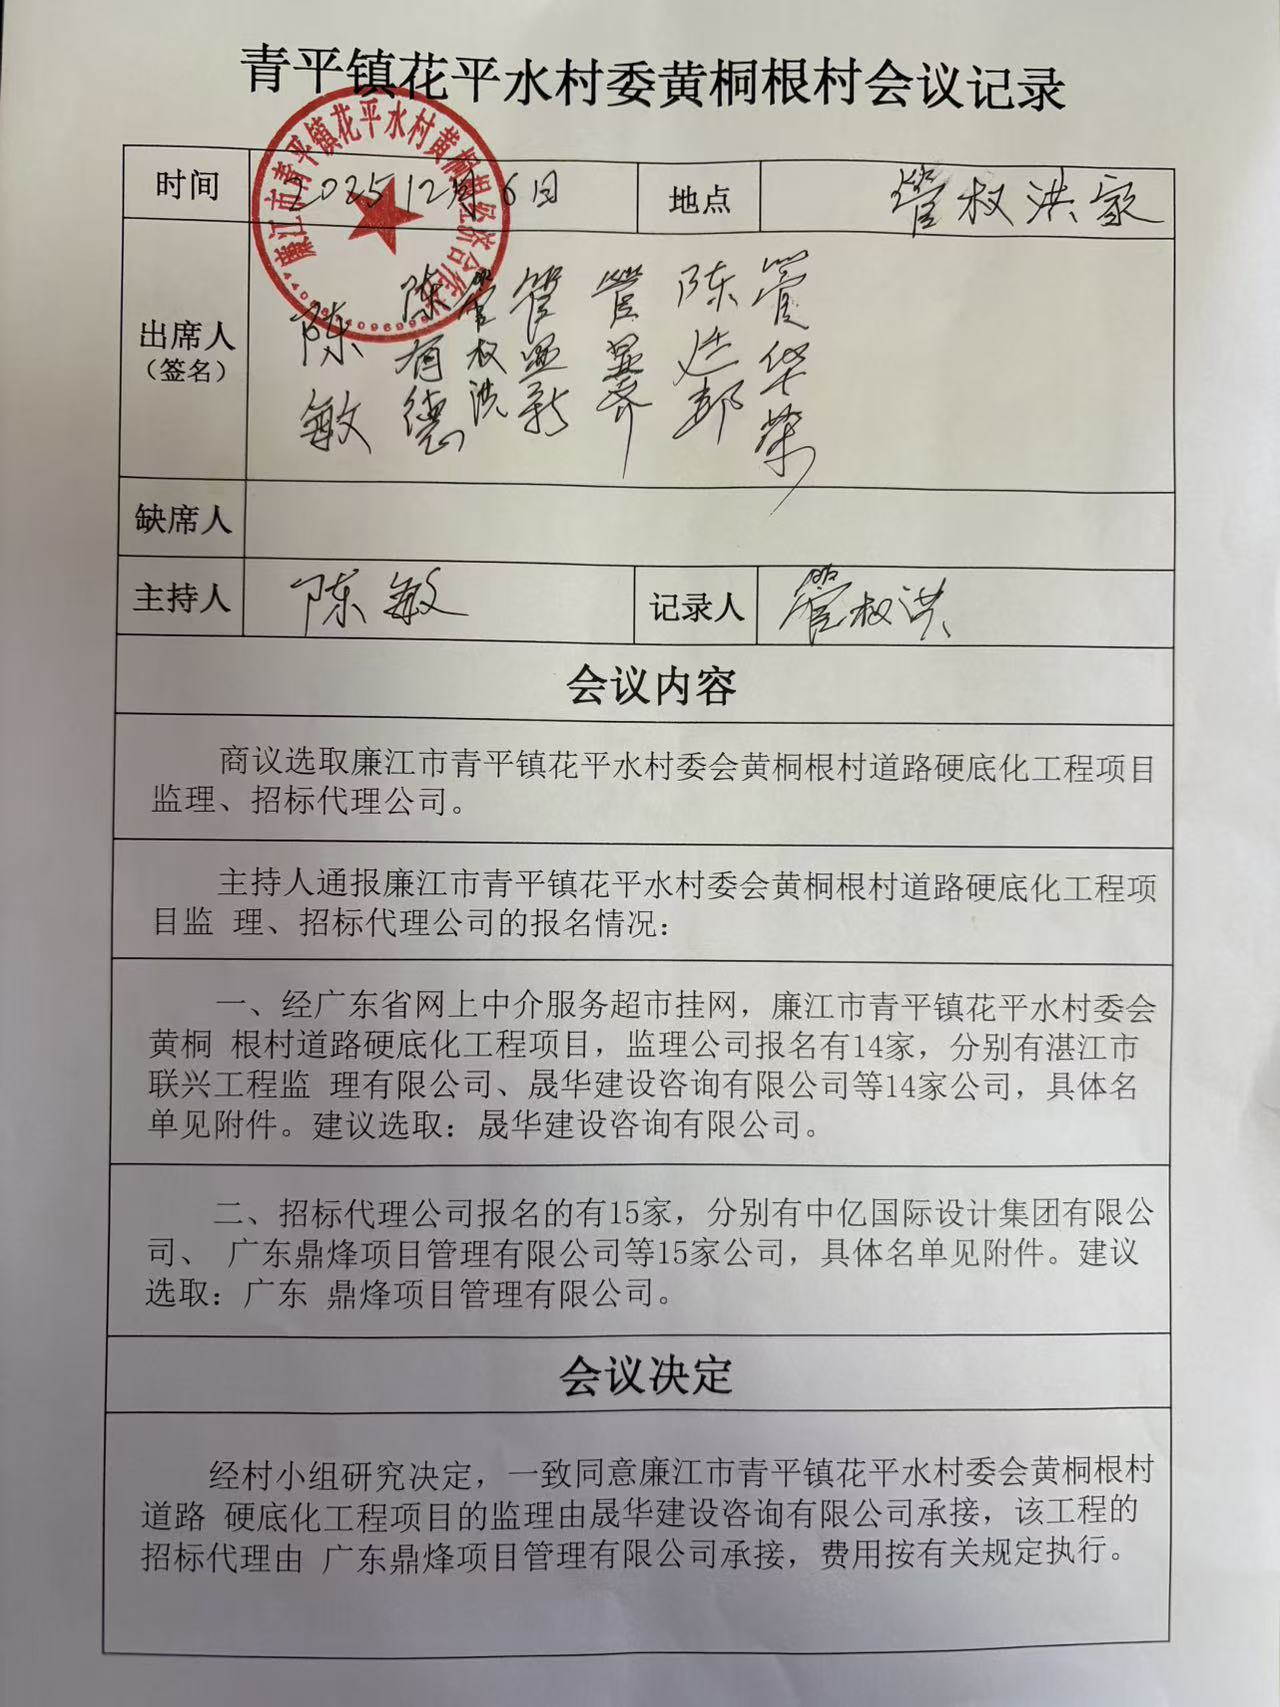 青平镇花平水村委黄桐根村会议记录
廉江市青平镇花平水村黄桐根经济合作社
时间
2025 12月6日
地点
管权洪家
出席人
（签名）
陈敏
陈有德
管权洪
管亚新
管显齐
陈廷邦
管华荣
缺席人
主持人
陈敏
记录人
管权洪
会议内容
商议选取廉江市青平镇花平水村委会黄桐根村道路硬底化工程项目
监理、招标代理公司。
主持人通报廉江市青平镇花平水村委会黄桐根村道路硬底化工程项
目监 理、招标代理公司的报名情况：
一、经广东省网上中介服务超市挂网，廉江市青平镇花平水村委会
黄桐 根村道路硬底化工程项目，监理公司报名有14家，分别有湛江市
联兴工程监 理有限公司、晟华建设咨询有限公司等14家公司，具体名
单见附件。建议选取：晟华建设咨询有限公司。
二、招标代理公司报名的有15家，分别有中亿国际设计集团有限公
司、 广东鼎烽项目管理有限公司等15家公司，具体名单见附件。建议
选取：广东 鼎烽项目管理有限公司。
会议决定
经村小组研究决定，一致同意廉江市青平镇花平水村委会黄桐根村
道路 硬底化工程项目的监理由晟华建设咨询有限公司承接，该工程的
招标代理由 广东鼎烽项目管理有限公司承接，费用按有关规定执行。